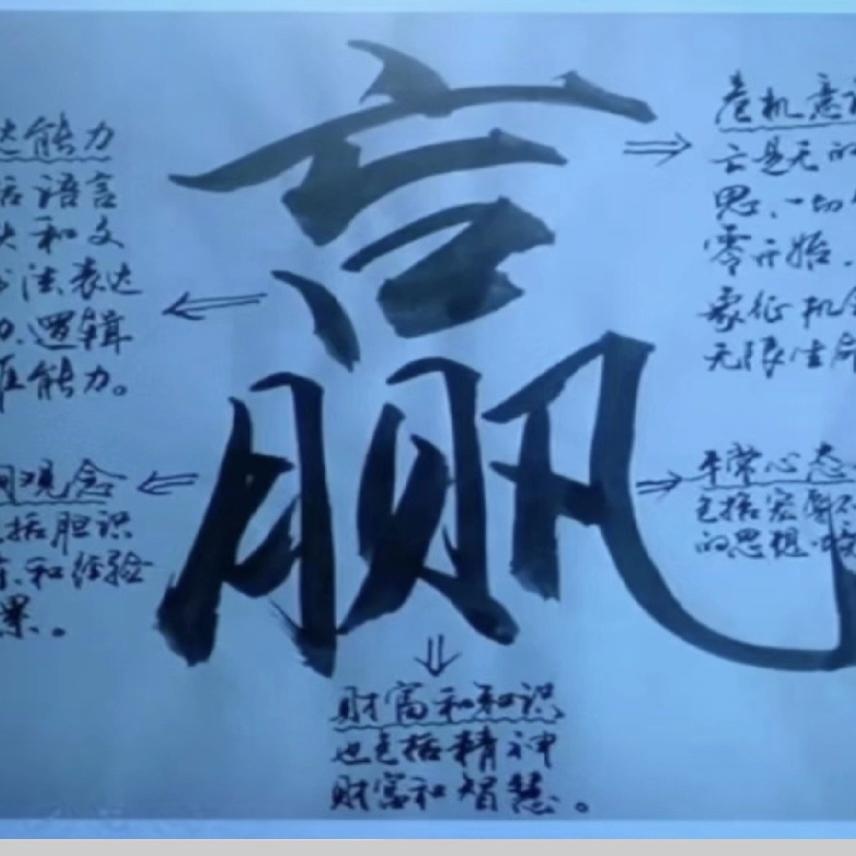 赢
达能力
语言
和文
书法表达
逻辑
能力。
危机意
亡是无的
思、一切
零开始、
象征机会
无限生命
观念
括胆识
和经验
果。
平常心态
包括宏
的思想
财富和知识
也包括精神
财富和智慧。